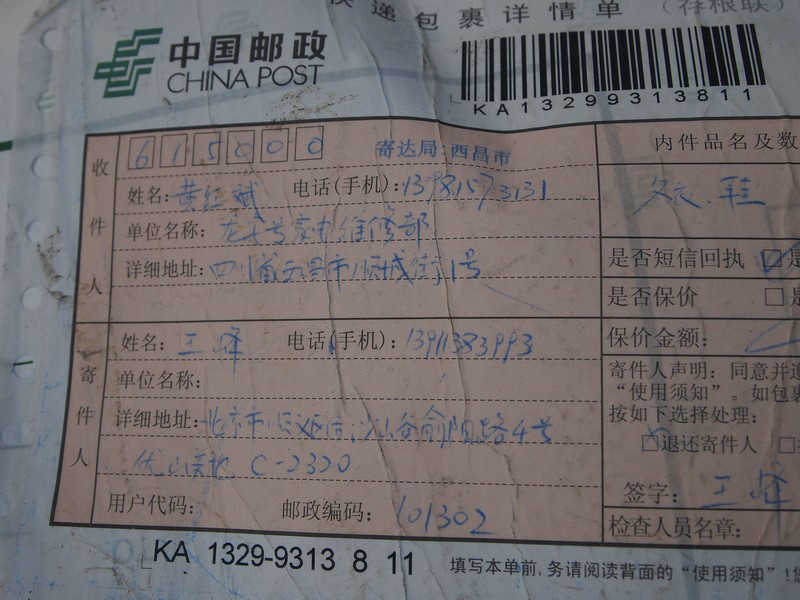 快递包裹详情单 (存根联)
中国邮政
CHINA POST
KA13299313811
收件人
615000
寄达局:西昌市
内件品名及数
姓名:黄红斌 电话(手机):13981573131
单位名称:
维修部
详细地址:四川省西昌市顺城街1号
是否短信回执
是否保价 □是
保价金额:
寄件人
姓名:王峰 电话(手机):13911383993
单位名称:
详细地址:北京市顺义区
路4号
C-2320
用户代码: 邮政编码:101302
寄件人声明:同意并遵
“使用须知”。如包裹
按如下选择处理:
□退还寄件人
签字: 王峰
检查人员名章:
KA 1329-9313 8 11
填写本单前,务请阅读背面的“使用须知”!您